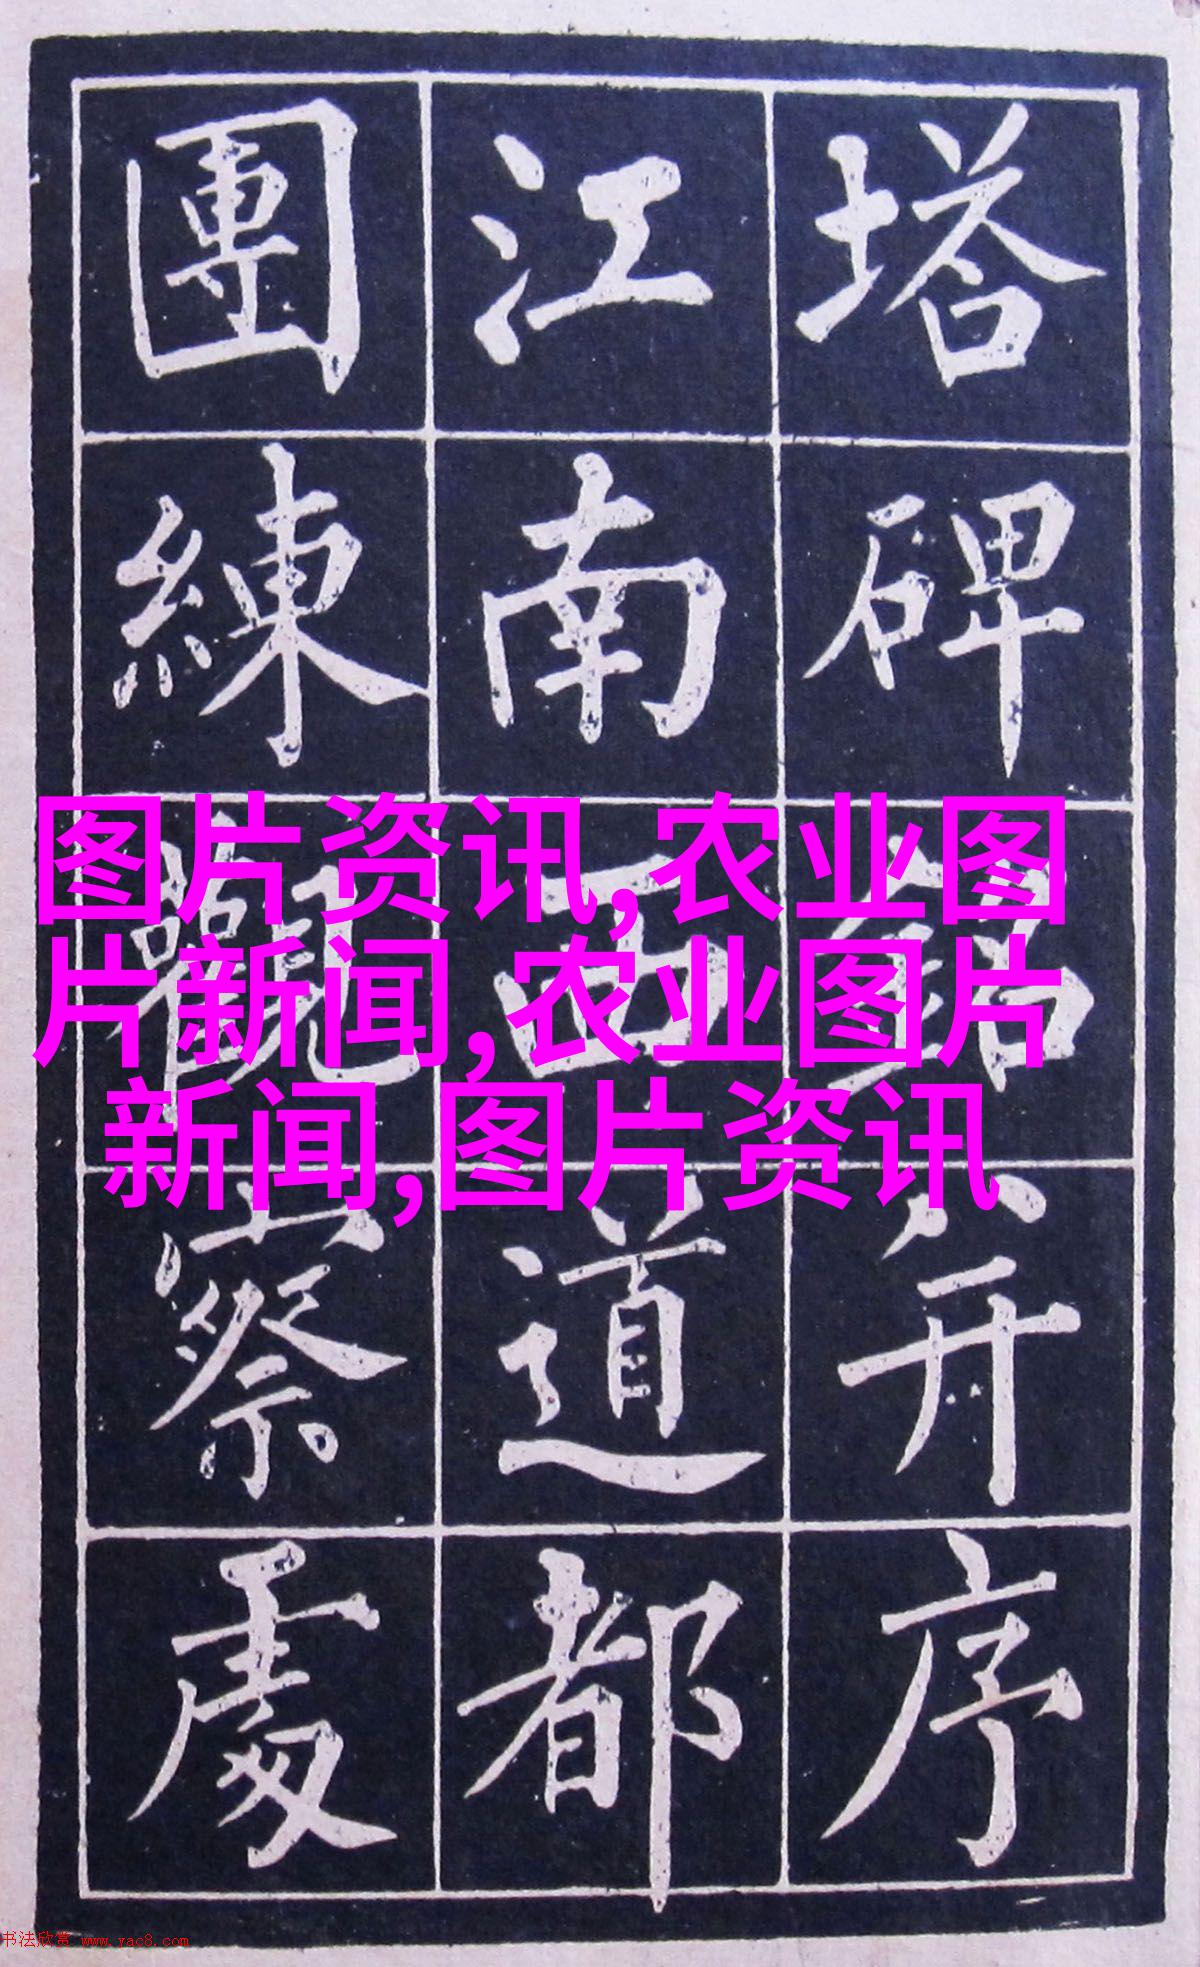 塔碑銘并序
江南西道都
團練觀察處
图片资讯,农业图
片新闻,农业图片
新闻,图片资讯
书法欣赏 www.yac8.com